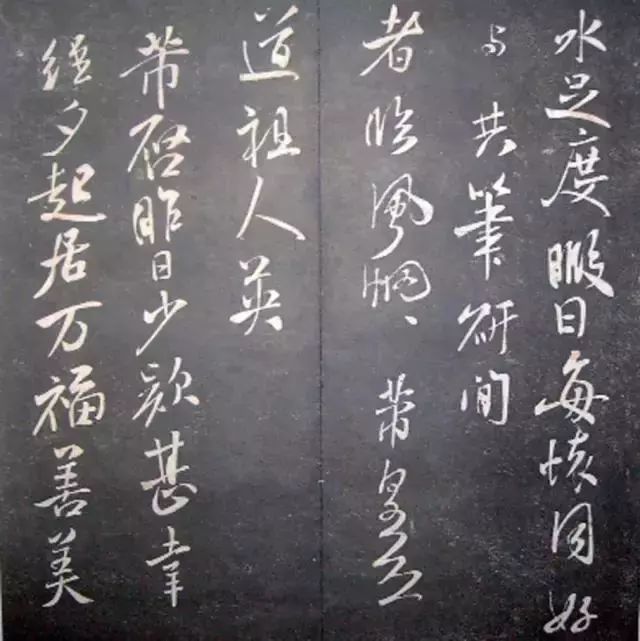 水足度暇日每懷同好
与共筆研間
者臨風惘〻 芾皇恐
道祖人英
芾啓昨日少款甚幸
經夕起居万福善美